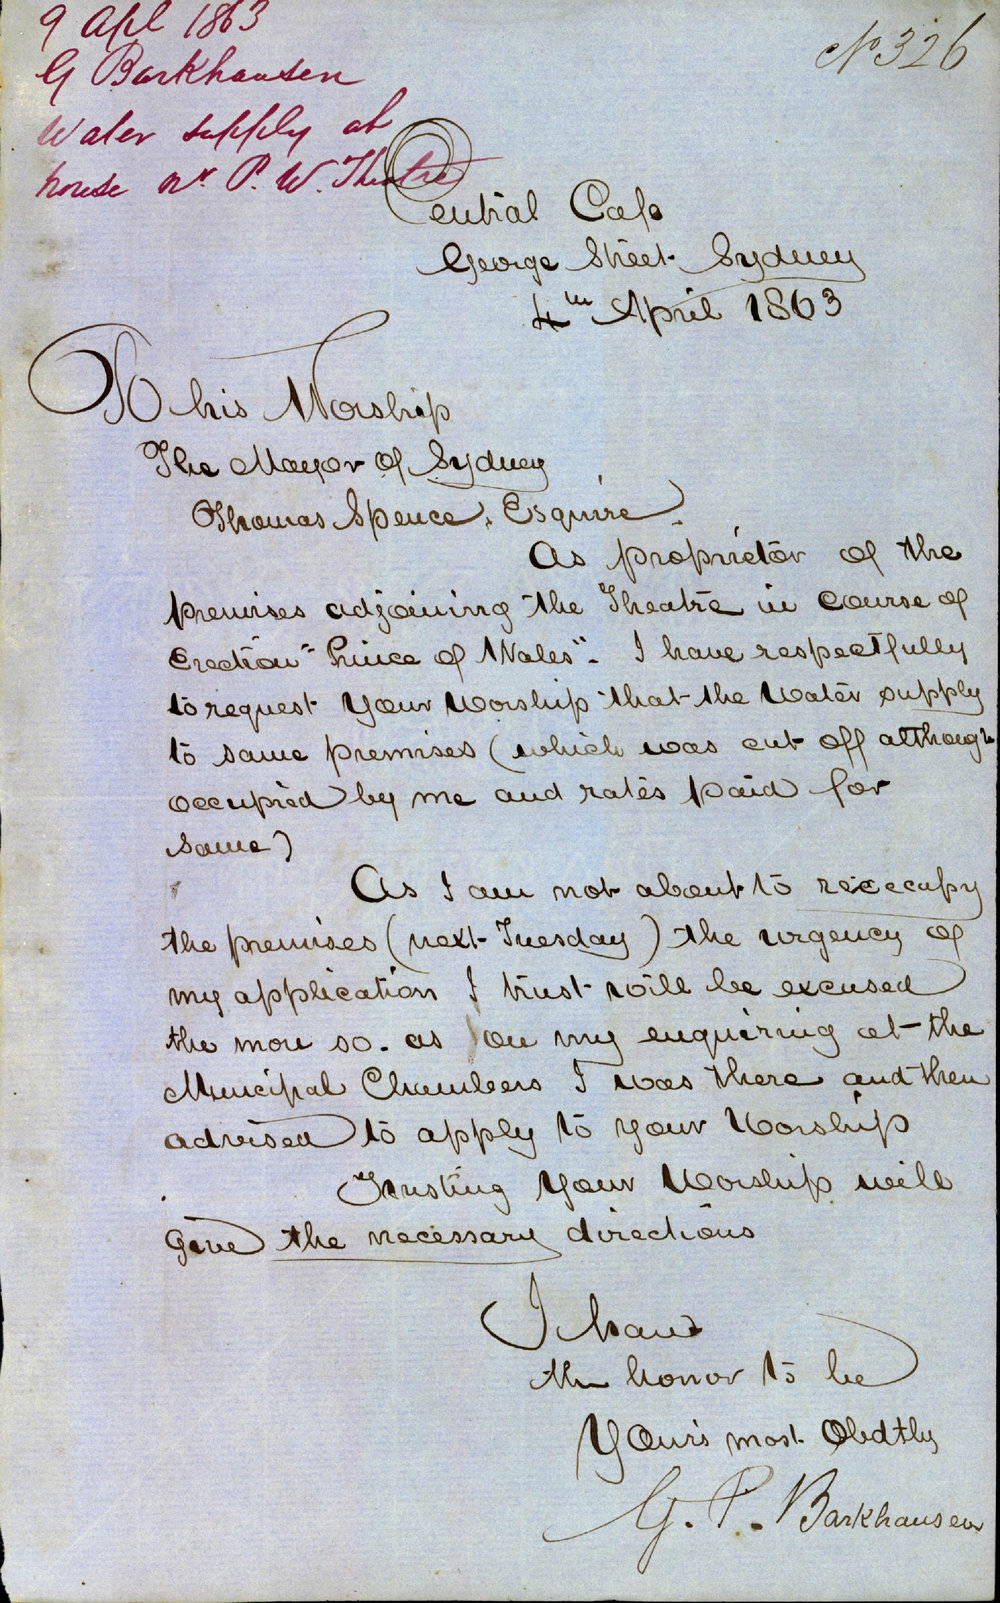 9 Apl 1863
G Barkhausen
Water supply at
house nr P. W. Theatre
No 326
Central Cafe
George Street Sydney
4th April 1863
To his Worship
The Mayor of Sydney
Thomas Spence, Esquire.
As proprietor of the
premises adjoining the Theatre in course of
Erection "Prince of Wales". I have respectfully
to request Your Worship that the Water supply
to same premises (which was cut off although
occupied by me and rates paid for
same)
As I am not about to reoccupy
the premises (next Tuesday) the urgency of
my application I trust will be excused
the more so. as on my enquiring at the
Municipal Chambers I was there and then
advised to apply to your Worship
Trusting Your Worship will
give the necessary directions
I have
the honor to be
Your's most Obdtly
G. P. Barkhausen